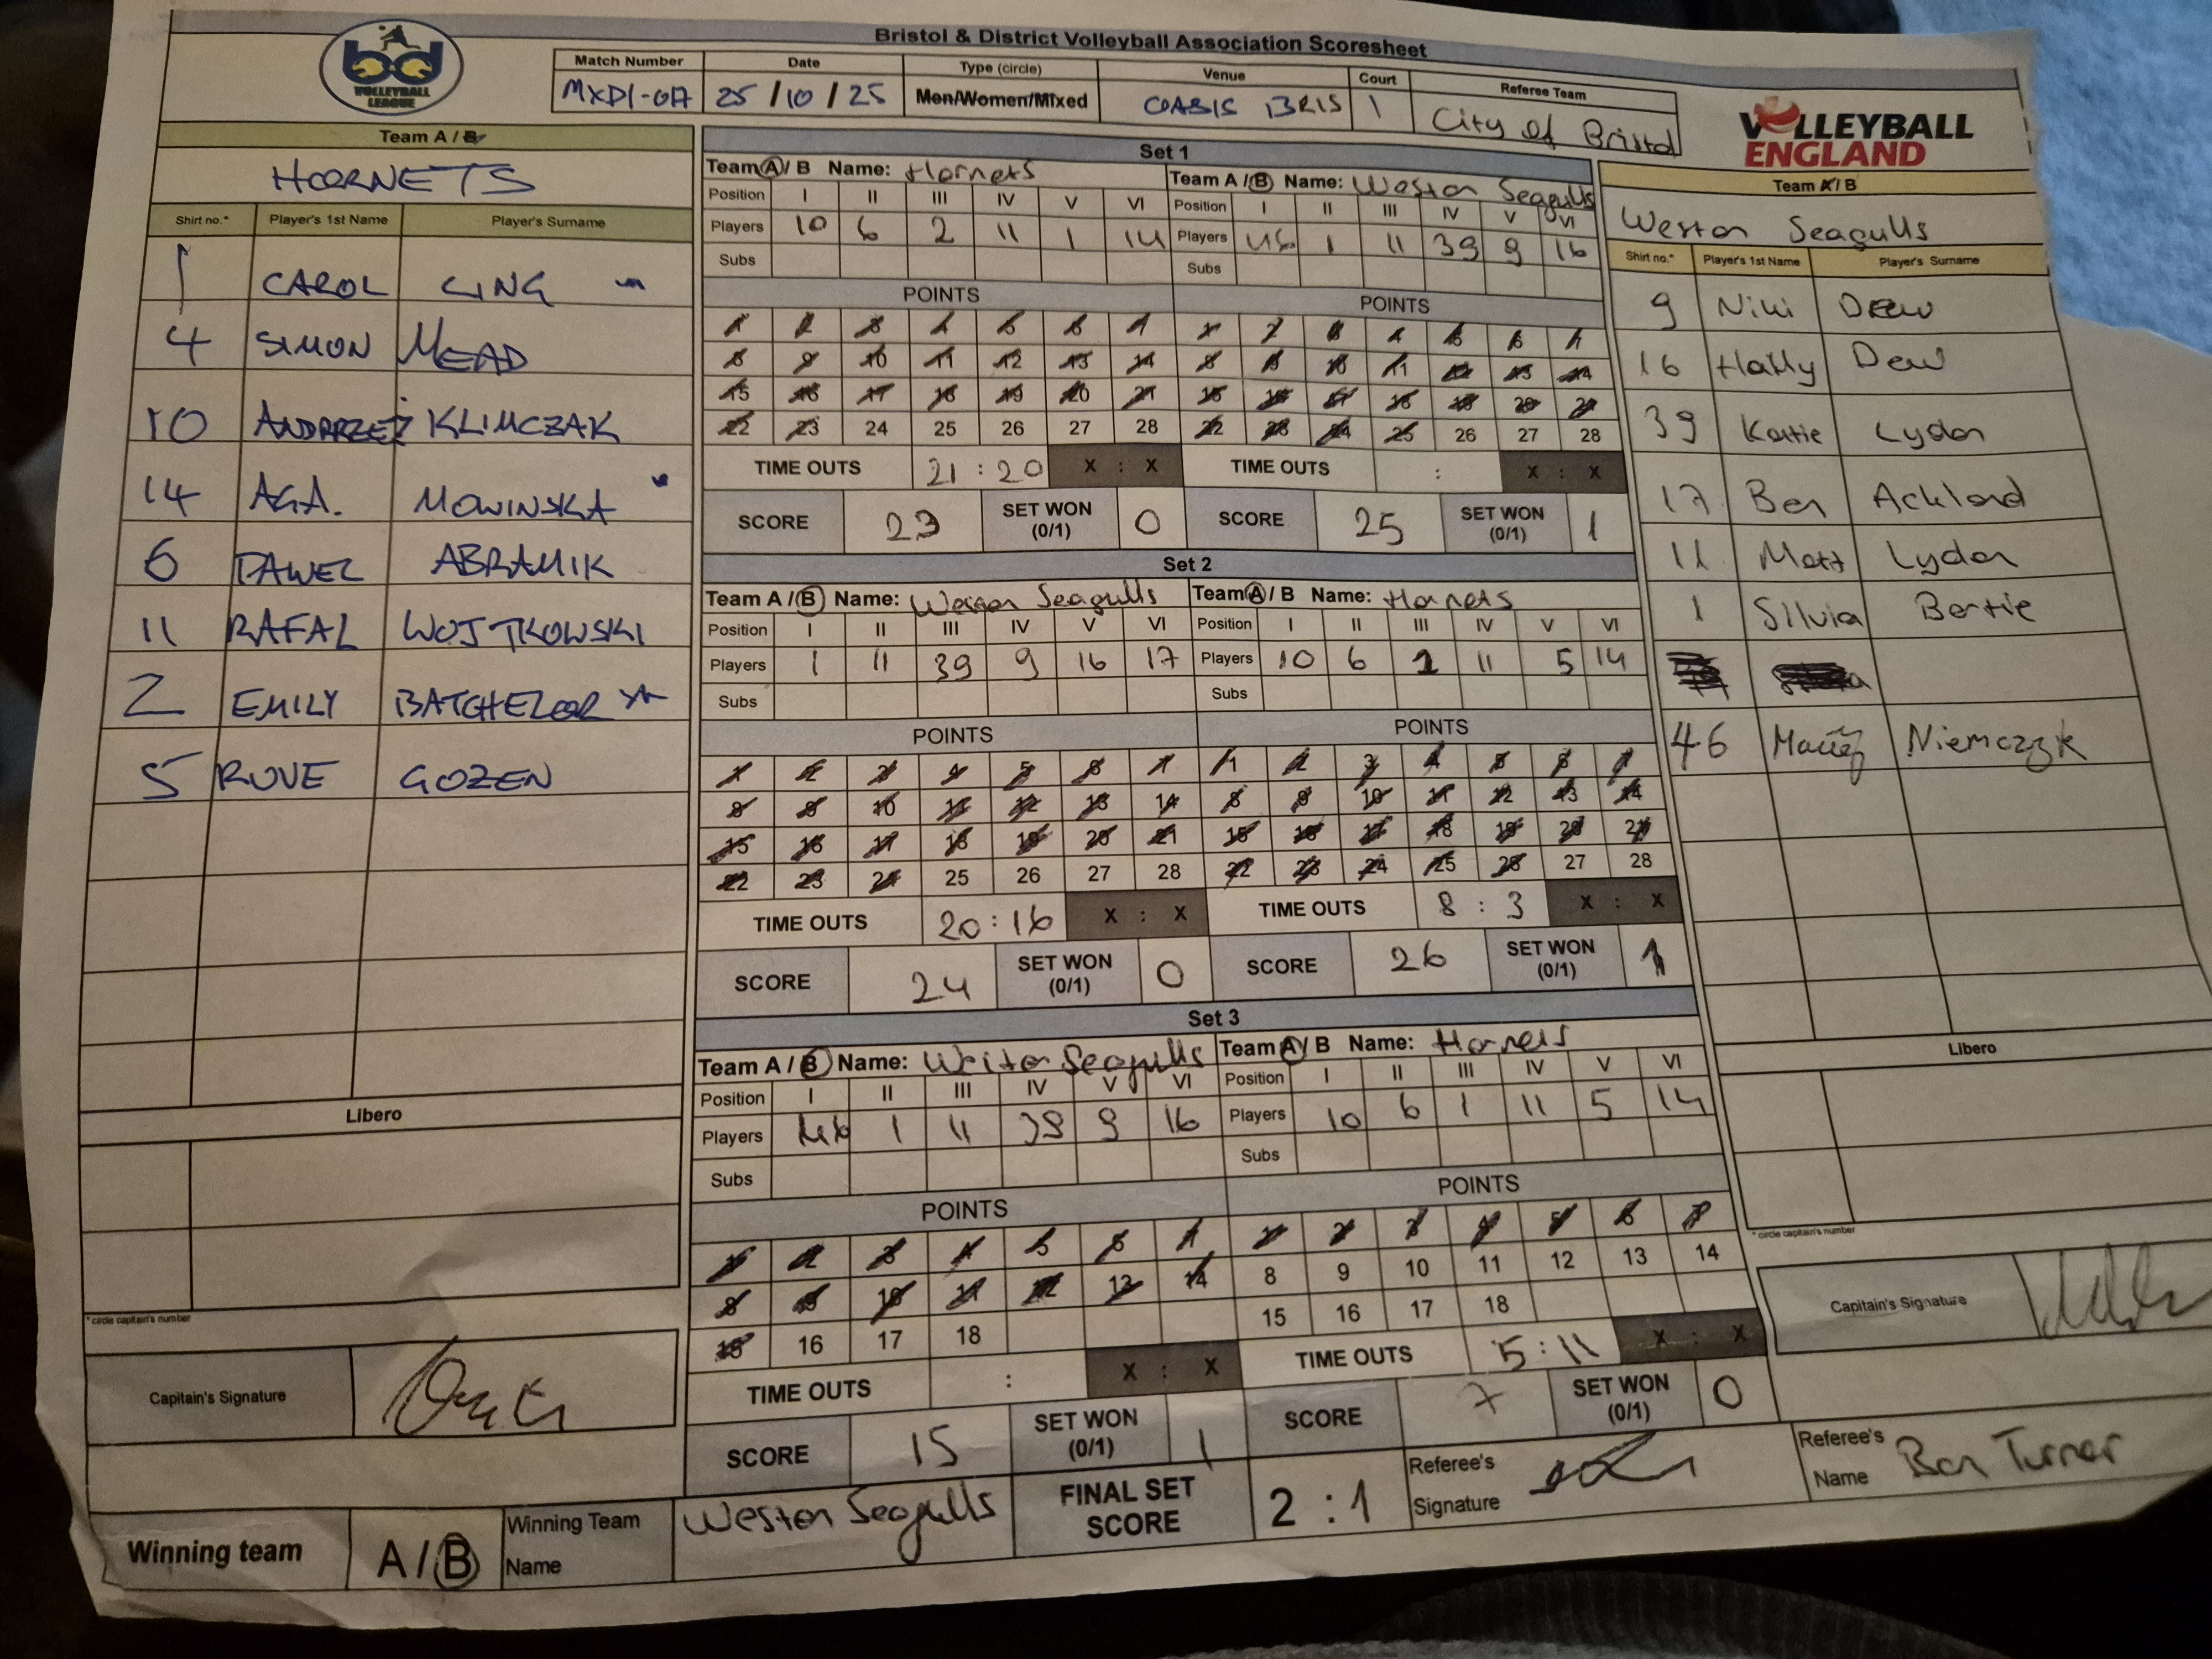 Bristol & District Volleyball Association Scoresheet
bd
VOLLEYBALL
LEAGUE
Match Number Date Type (circle) Venue Court Referee Team
25/10/25 Men/Women/Mixed OASIS BRIS 1 City of Bristol
VOLLEYBALL
ENGLAND
Team A / B
HORNETS
Shirt no.* Player's 1st Name Player's Surname
1 CAROL LING
4 SIMON MEAD
10 KLIMCZAK
14 AGA. MOWINSKA
6 PAWEL ABRAMIK
11 RAFAL WOJTKOWSKI
2 EMILY BATCHELOR
5 RUVE GOZEN
Libero
*circle captain's number
Capitain's Signature
Set 1
Team A / B Name: Hornets
Position I II III IV V VI
Players 10 6 2 11 1 14
Subs
POINTS
1 2 3 4 5 6 7
8 9 10 11 12 13 14
15 16 17 18 19 20 21
22 23 24 25 26 27 28
TIME OUTS 21 : 20 X : X
SCORE 23 SET WON (0/1) 0
Team A / B Name: Weston Seagulls
Position I II III IV V VI
Players 46 1 11 39 9 16
Subs
POINTS
1 2 3 4 5 6 7
8 9 10 11 12 13 14
15 16 17 18 19 20 21
22 23 24 25 26 27 28
TIME OUTS : X : X
SCORE 25 SET WON (0/1) 1
Set 2
Team A / B Name: Weston Seagulls
Position I II III IV V VI
Players 1 11 39 9 16 17
Subs
POINTS
1 2 3 4 5 6 7
8 9 10 11 12 13 14
15 16 17 18 19 20 21
22 23 24 25 26 27 28
TIME OUTS 20 : 16 X : X
SCORE 24 SET WON (0/1) 0
Team A / B Name: Hornets
Position I II III IV V VI
Players 10 6 1 11 5 14
Subs
POINTS
1 2 3 4 5 6 7
8 9 10 11 12 13 14
15 16 17 18 19 20 21
22 23 24 25 26 27 28
TIME OUTS 8 : 3 X : X
SCORE 26 SET WON (0/1) 1
Set 3
Team A / B Name: Weston Seagulls
Position I II III IV V VI
Players 46 1 11 39 9 16
Subs
POINTS
1 2 3 4 5 6 7
8 9 10 11 12 13 14
15 16 17 18
TIME OUTS : X : X
SCORE 15 SET WON (0/1) 1
Team A / B Name: Hornets
Position I II III IV V VI
Players 10 6 1 11 5 14
Subs
POINTS
1 2 3 4 5 6 7
8 9 10 11 12 13 14
15 16 17 18
TIME OUTS 5 : 11 X : X
SCORE 7 SET WON (0/1) 0
Team A / B
Weston Seagulls
Shirt no.* Player's 1st Name Player's Surname
9 Niki Dew
16 Dew
39 Katie Lydon
17 Ben Ackland
11 Matt Lydon
1 Silvia Bertie
46 Maciej Niemczyk
Libero
*circle captain's number
Capitain's Signature
Winning team A / B Winning Team Name Weston Seagulls
FINAL SET SCORE 2 : 1
Referee's Signature
Referee's Name Ben Turner